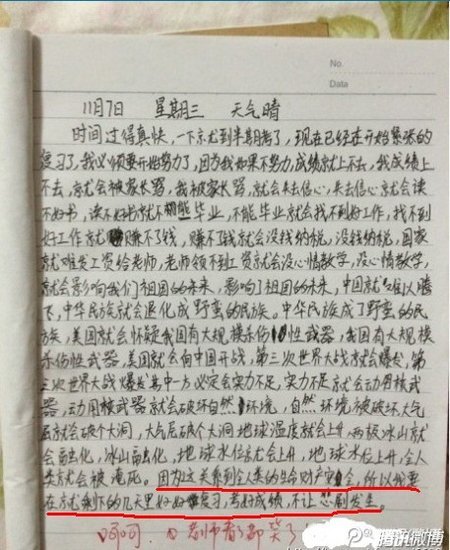 No.
Data
11月7日 星期三 天气晴
时间过得真快,一下就到半期考了,现在已经在开始紧张的
复习了,我必须要开始努力了,因为我如果不努力,成绩就上不去,我成绩上
不去,就会被家长骂,我被家长骂,就会失去信心,失去信心就会读
不好书,读不好书就不能毕业,不能毕业就会找不到好工作,找不到
好工作就赚不了钱,赚不了钱就会没钱纳税,没钱纳税,国家
就难发工资给老师,老师领不到工资就会没心情教学,没心情教学,
就会影响我们祖国的未来,影响了祖国的未来,中国就难以腾
飞,中华民族就会退化成野蛮的民族。中华民族成了野蛮的民
族,美国就会怀疑我国有大规模杀伤性武器,我国有大规模
杀伤性武器,美国就会向中国开战,第三次世界大战就会爆发,第
三次世界大战爆发其中一方必定会实力不足,实力不足就会动用核武
器,动用核武器就会破坏自然环境,自然环境被破坏大气
层就会破个大洞,大气层破个大洞地球温度就会上升,两极冰山就
会融化,冰山融化,地球水位就会上升,地球水位上升,全人
类就会被淹死。因为这关系到全人类的生命财产安全,所以我要
在就剩下的几天里好好复习,考好成绩,不让悲剧发生。
呵呵,老师看了都笑了
腾讯微博